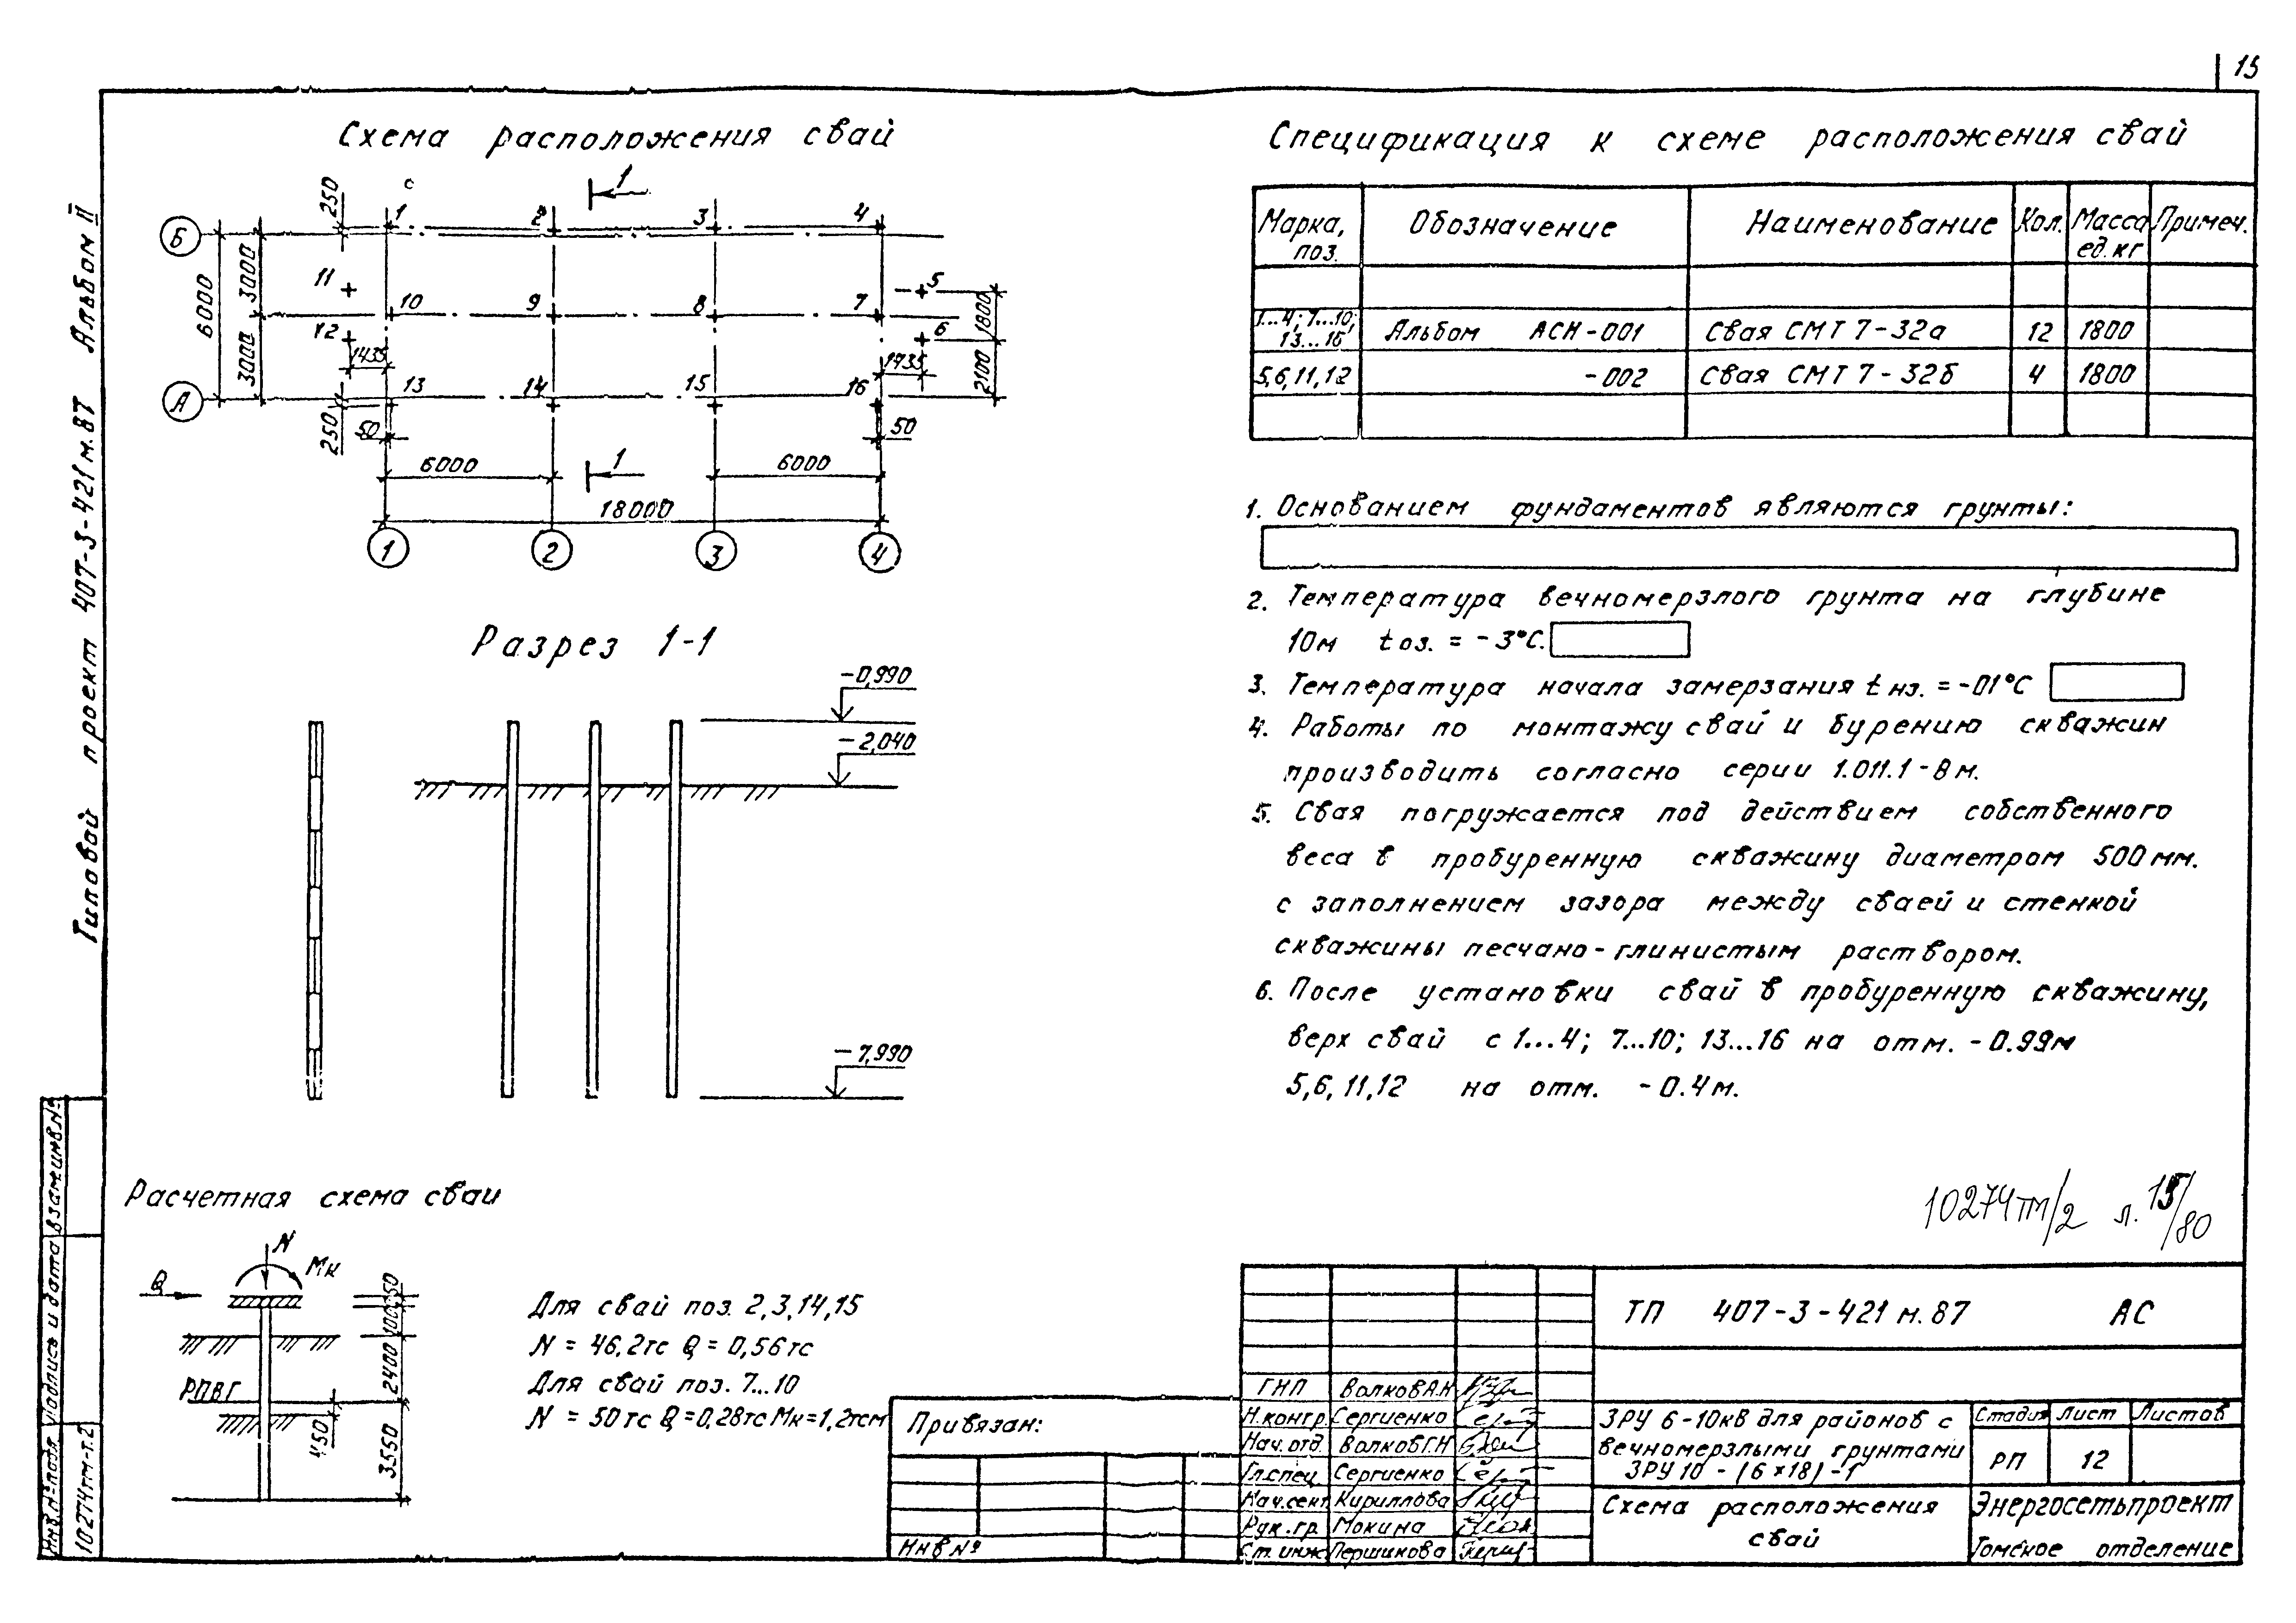 15
Типовой проект 407-3-421м.87 Альбом II
Схема расположения свай
1
250
Б
1
2
3
4
11
5
3000
6000
10
9
8
7
12
6
1800
3000
1435
1435
2100
13
14
15
16
А
250
50
50
6000
1
6000
18000
1
2
3
4
Разрез 1-1
-0,990
-2,040
-7,990
Расчетная схема сваи
N
Mк
Q
50
100
2400
РПВГ
450
3550
Для свай поз. 2,3,14,15
N = 46.2тс Q = 0,56тс
Для свай поз. 7...10
N = 50тс Q=0,28тс Mк=1,2тсм
Спецификация к схеме расположения свай
Марка, поз. Обозначение Наименование Кол. Масса ед.кг Примеч.
1...4; 7...10; 13...16 Альбом АСИ-001 Свая СМТ 7-32а 12 1800
5,6,11,12 -002 Свая СМТ 7-32б 4 1800
1. Основанием фундаментов являются грунты:
2. Температура вечномерзлого грунта на глубине
10м tоз. = -3°С.
3. Температура начала замерзания tнз. = -01°С
4. Работы по монтажу свай и бурению скважин
производить согласно серии 1.011.1-8м.
5. Свая погружается под действием собственного
веса в пробуренную скважину диаметром 500мм.
с заполнением зазора между сваей и стенкой
скважины песчано-глинистым раствором.
6. После установки свай в пробуренную скважину,
верх свай с 1...4; 7...10; 13...16 на отм. -0.99м
5,6,11,12 на отм. -0.4м.
10274тм/2 л. 15/80
ТП 407-3-421м.87 АС
ГИП Волков А.Н
Н.контр. Сергиенко
Нач.отд. Волков Г.Н
Гл.спец Сергиенко
Нач.сект Кириллова
Рук.гр. Мокина
Ст.инж Першикова
ЗРУ 6-10кВ для районов с
вечномерзлыми грунтами
ЗРУ 10-(6×18)-1
Стадия Лист Листов
РП 12
Схема расположения
свай
Энергосетьпроект
Томское отделение
Привязан:
Инв №
Инв.№ подл. Подпись и дата Взам.инв.№
10274тм-т.2